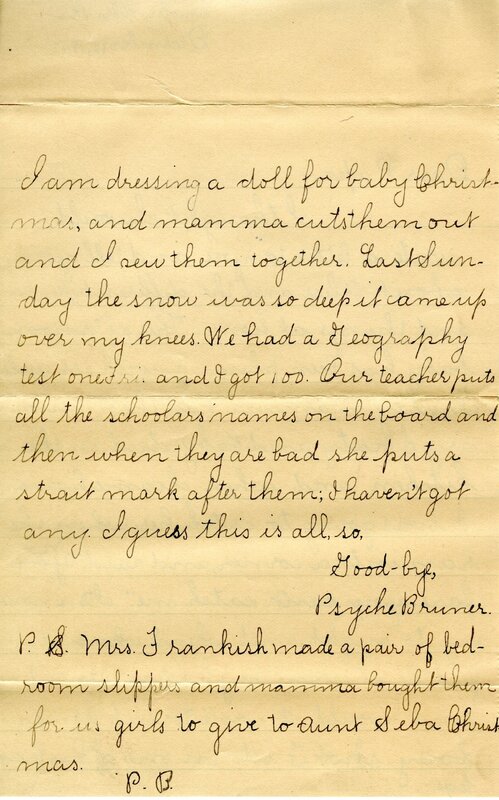 I am dressing a doll for baby Christ-
mas, and mamma cuts them out
and I sew them together. Last Sun-
day the snow was so deep it came up
over my knees. We had a Geography
test one Fri. and I got 100. Our teacher puts
all the schoolars names on the board and
then when they are bad she puts a
strait mark after them; I haven't got
any. I guess this is all, so,
Good-bye,
Psyche Bruner.
P. S. Mrs. Frankish made a pair of bed-
room slippers and mamma bought them
for us girls to give to aunt Seba Christ
mas.
P. B.